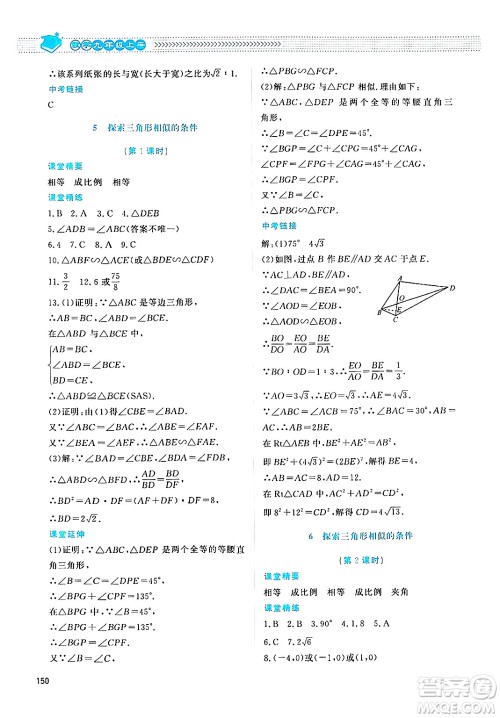 数学九年级上册
∴该系列纸张的长与宽(长大于宽)之比为√2∶1.
中考链接
C
5 探索三角形相似的条件
(第1课时)
课堂精要
相等 成比例 相等
课堂精练
1. B 2. A 3. B 4. △DEB
5. ∠ADB=∠ABC(答案不唯一)
6. 4 7. C 8. C 9. A
10. △ABF∽△ACE △BDE∽△CDF
11. 3/2 12. 6 或 75/8
13. (1)证明：∵△ABC 是等边三角形，
∴AB=BC，∠ABD=∠BCE=60°.
在△ABD 与△BCE 中，
AB=BC，
∠ABD=∠BCE，
BD=CE，
∴△ABD≌△BCE(SAS).
(2)证明：由(1)得∠BAD=∠CBF.
又∵∠BFD=∠AFE，
∴∠AFE=∠BAF+∠ABF=∠ABD.
(3)解：∵∠BAD=∠DBF，∠BDF=∠ADB，
∴△ADB∽△BDF. ∴AD/BD=BD/DF.
∴BD²=AD·DF=2. ∴BD=√2.
课堂延伸
(1)证明：∵△ABC，△DEP 是两个全等的等腰直角三角形，
∴∠B=∠C=∠DPE=45°.
∴∠BPG+∠CPF=135°.
在△BPG 中，∵∠B=45°，
∴∠BPG+∠BGP=135°.
∴∠BGP=∠CPF.
又∵∠B=∠C，
∴△PBG∽△FCP.
(2)解：△PBG 与△FCP 相似.
理由：∵△ABC，△DEP 是两个全等的等腰直角三角形，
∴∠B=∠C=∠DPE=45°.
∵∠BGP=∠C+∠CPG=45°+∠CPG，
∠CPF=∠DPE+∠CPG=45°+∠CPG，
∴∠BGP=∠CPF.
又∵∠B=∠C，∴△PBG∽△FCP.
中考链接
解：(1)75° 4√3
(2)如图，过点 B 作 BE∥AD 交 AC 于点 E.
∵AC⊥AD，BE∥AD，
∴∠DAO=∠BEO=90°.
∵∠AOD=∠EOB，
∴△AOD∽△EOB.
∴BO/DO=EO/AO=BE/DA.
∵BO∶OD=1∶3，
∴EO/AO=BE/DA=1/3.
∵AO=3√3，∴EO=√3.
∴AE=4√3.
∵∠ABC=∠ACB=75°，
∴∠BAC=30°，AB=AC.
∴AB=2BE.
在 Rt△AEB 中，BE²+AE²=AB²，
即(4√3)²+BE²=(2BE)²，解得 BE=4.
∴AB=AC=8，AD=12.
在 Rt△CAD 中，AC²+AD²=CD²，
即 8²+12²=CD²，解得 CD=4√13.
6 探索三角形相似的条件
(第2课时)
课堂精要
相等 成比例 成比例 夹角
课堂精练
1. B 2. B 3. 90° 4. B
5. C 6. 7.2 7. √6
8. (−4,0)或(4,0)或(−1,0)或(1,0)
150